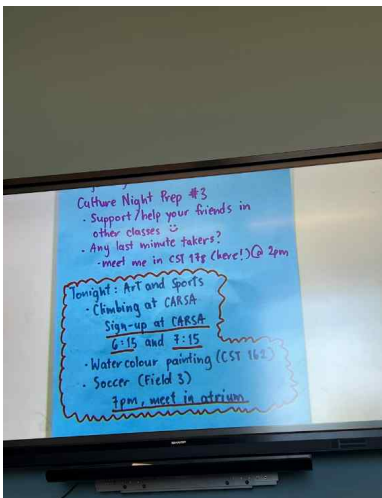 Culture Night Prep #3
· Support/help your friends in
other classes ☺
· Any last minute takers?
- meet me in CST 178 (here!) @ 2pm
Tonight: Art and Sports
· Climbing at CARSA
Sign-up at CARSA
6:15 and 7:15
· Watercolour painting (CST 162)
· Soccer (Field 3)
7pm, meet in atrium